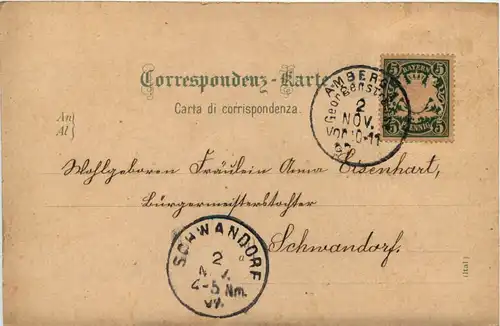 Correspondenz-Karte
Carta di corrispondenza.
An
Al
BAYERN
5 5
5 5
PFENNIG
AMBERG
Georgenstr.
2
NOV.
Vor.10-11
97
Wohlgeboren Fräulein Anna Eisenhart,
Bürgermeisterstochter
Schwandorf.
SCHWANDORF
2
NOV.
4-5 Nm.
97.
(Ital)